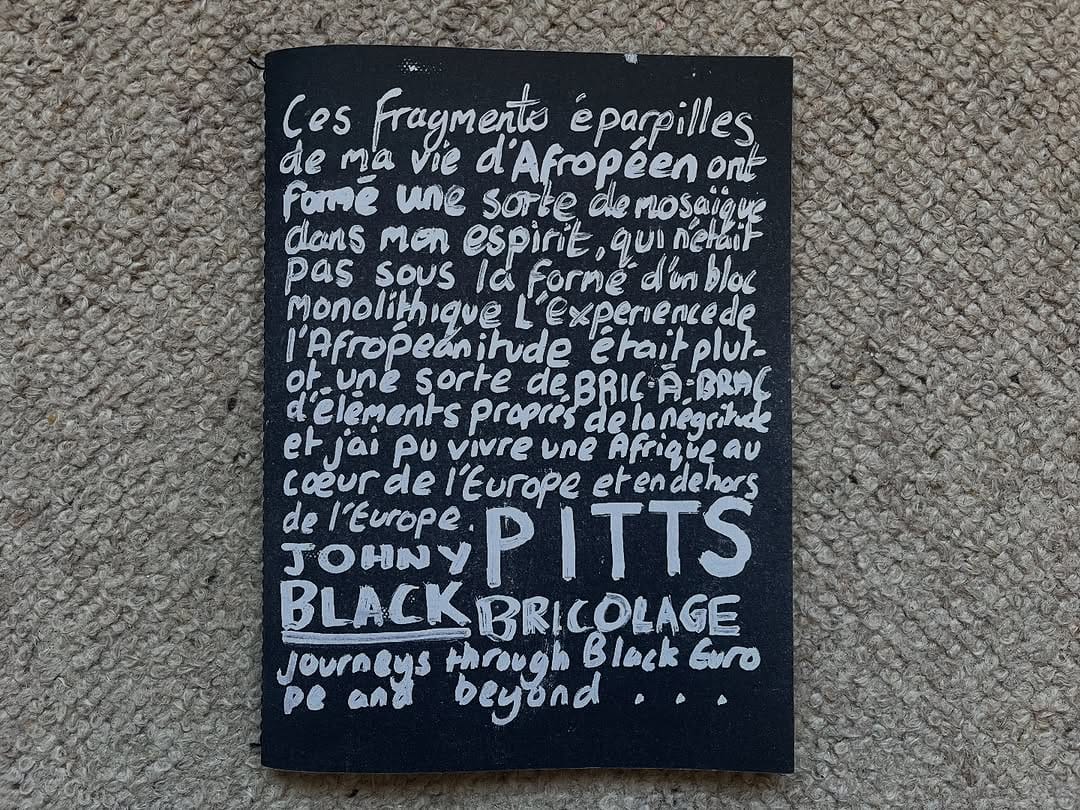 Ces fragments éparpilles
de ma vie d'Afropéen ont
formé une sorte de mosaïque
dans mon espirit, qui n'était
pas sous la formé d'un bloc
monolithique L'Experience de
l'Afropéanitude était plut-
ot une sorte de BRIC-À-BRAC
d'éléments proprés de la négritude
et j'ai pu vivre une Afrique au
cœur de l'Europe et en dehors
de l'Europe.
JOHNY PITTS
BLACK BRICOLAGE
journeys through Black Euro
pe and beyond . . .